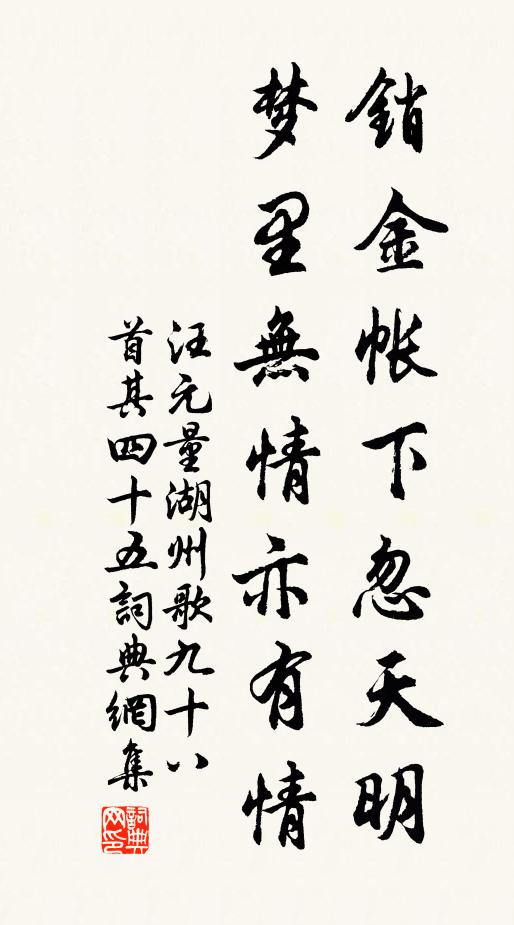 銷金帐下忽天明
梦里無情亦有情
汪元量湖州歌九十八
首其四十五詞典網集
詞典
网印